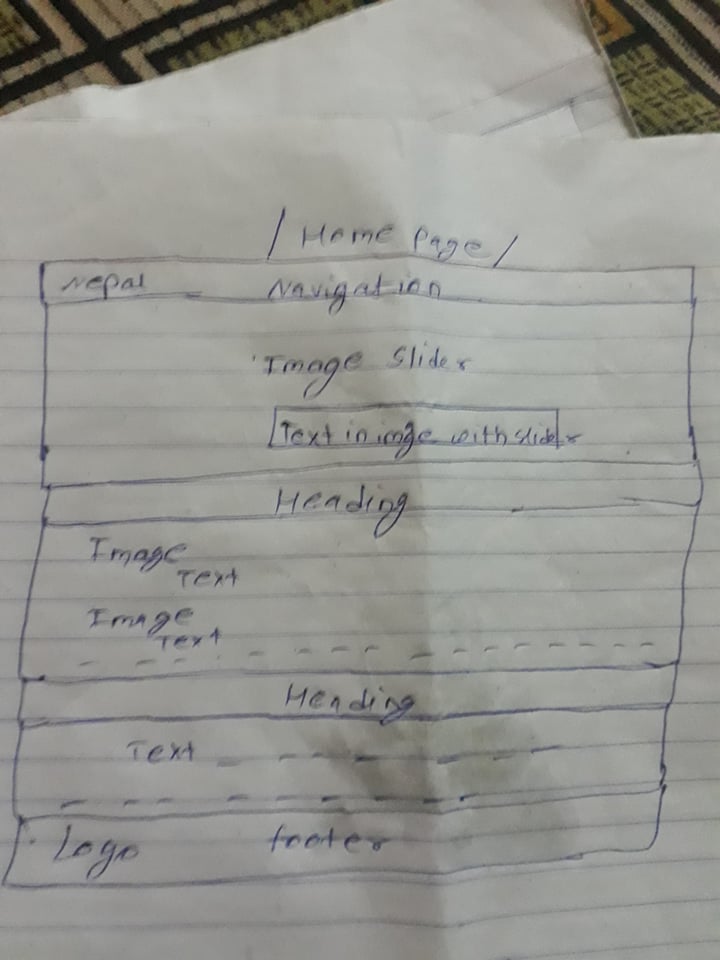 / Home Page /
Nepal Navigation
Image Slider
Text in imge with slider
Heading
Image
Text
Image
Text
Heading
Text
Logo footer